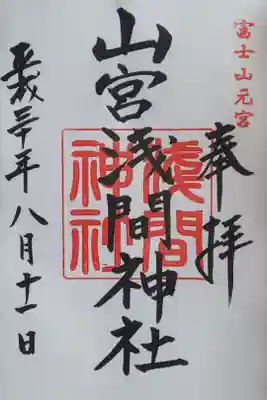 富士山元宮
奉拝
山宮浅間神社
浅間神社
平成三十年八月十一日